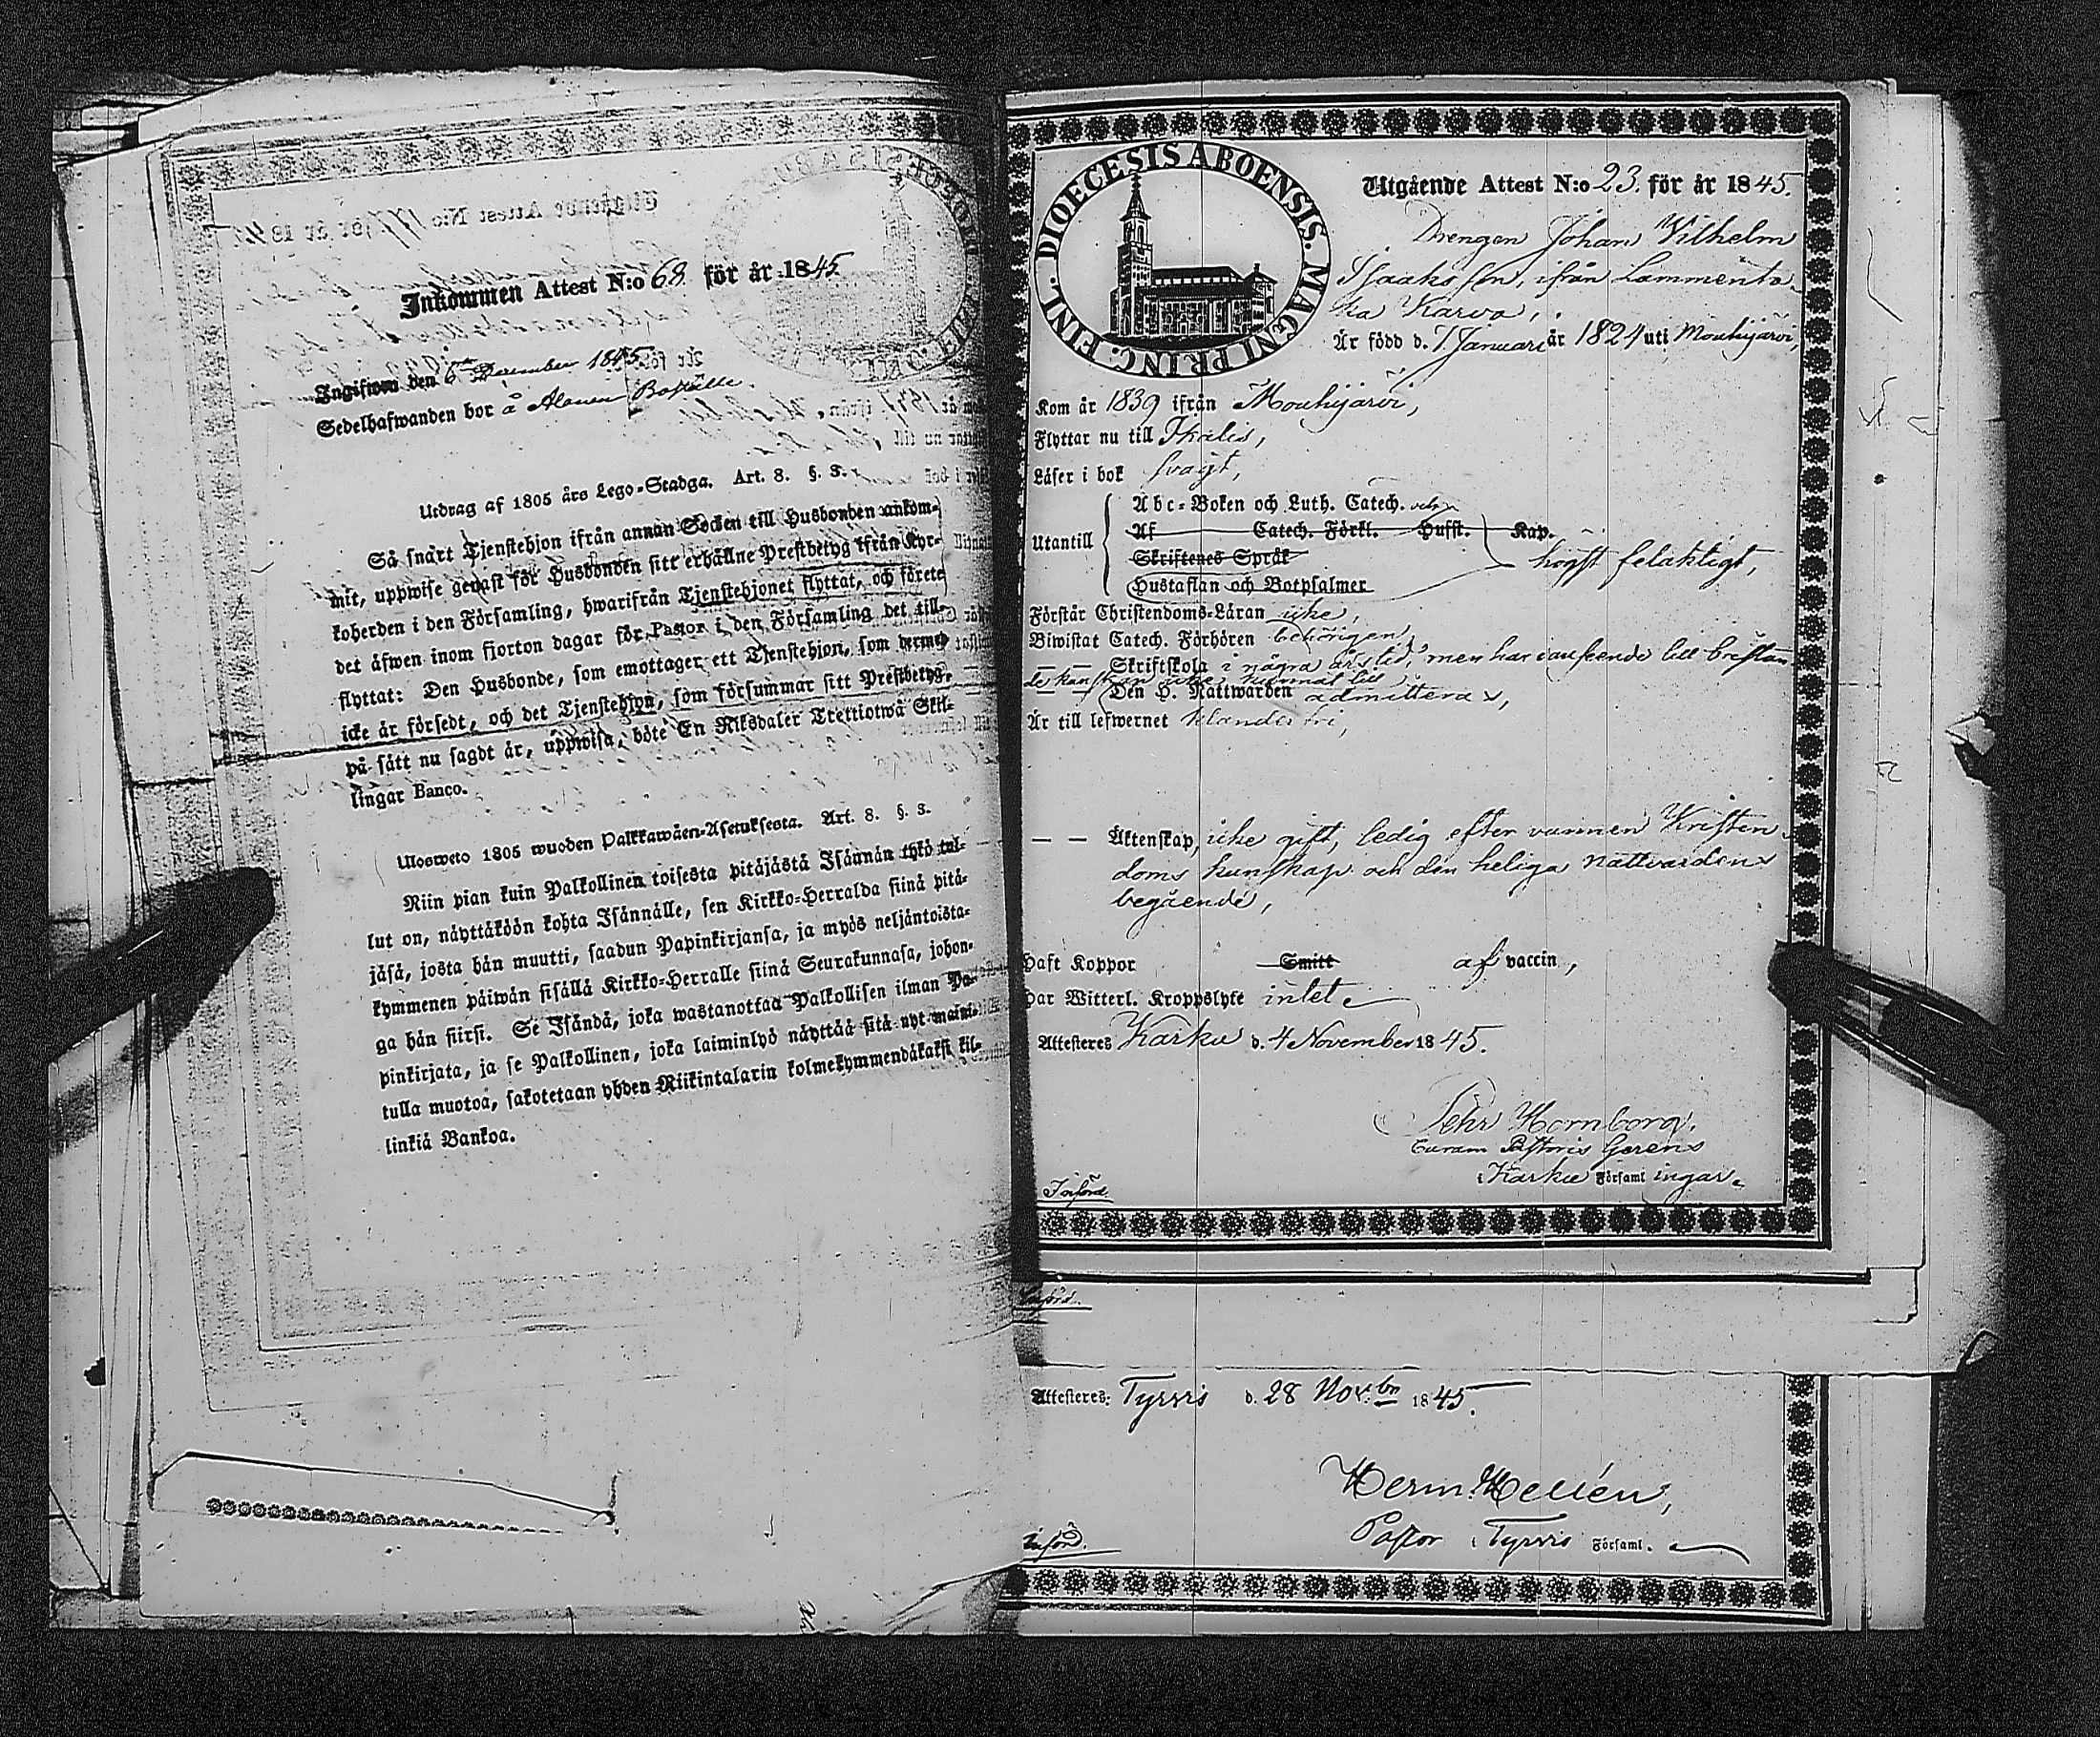 Inkommen Attest N:o 68 för år 1845
Ingifwen den 6 December 1845
Sedelhafwanden bor å Alanen Boställe.
Utdrag af 1805 års Lego-Stadga. Art. 8. §. 3.
Så snart Tjenstehjon ifrån annan Socken till Husbonden ankom-
mit, uppwise genast för Husbonden sitt erhållne Prestbetyg ifrån Kyr-
koherden i den Församling, hwarifrån Tjenstehjonet flyttat, och förete
det äfwen inom fjorton dagar för Pastor i den Församling det till-
flyttat: Den Husbonde, som emottager ett Tjenstehjon, som dermed
icke är försedt, och det Tjenstehjon, som försummar sitt Prestbetyg,
på sätt nu sagdt är, uppwisa, böte En Riksdaler Trettiotwå Skil-
lingar Banco.
Ulosweto 1805 wuoden Palkkawäen-Asetuksesta. Art. 8. §. 3.
Niin pian kuin Palkollinen toisesta pitäjästä Isännän tykö tul-
lut on, näyttäköön kohta Isännälle, sen Kirkko-Herralda siinä pitä-
jäsä, josta hän muutti, saadun Papinkirjansa, ja myös neljäntoista-
kymmenen päiwän sisällä Kirkko-Herralle siinä Seurakunnasa, johon-
ga hän siirsi. Se Isändä, joka wastanottaa Palkollisen ilman Pa-
pinkirjata, ja se Palkollinen, joka laiminlyö näyttää sitä nyt maini-
tulla muotoa, sakotetaan yhden Riikintalarin kolmekymmendäkaksi kil-
linkiä Bankoa.
DIOECESIS ABOENSIS. MAGNI PRINC. FINL.
Utgående Attest N:o 23. för år 1845.
Drengen Johan Vilhelm
Isaaksson, ifrån Lammenta-
ka Karva,
Är född d. 7 Januari år 1824 uti Mouhijärvi,
Kom år 1839 ifrån Mouhijärvi,
Flyttar nu till Ikalis,
Läser i bok svagt,
Utantill
Abc-Boken och Luth. Catech. och
Af Catech. Förkl. Hufst. Kap.
Skriftenes Språk
Hustaflan och Botpsalmer
högst felaktigt,
Förstår Christendoms-Läran icke,
Biwistat Catech. Förhören behörigen,
— — Skriftskola i några års tid, men har i anseende till bristan-
de kunskap icke kunnat till
— — Den H. Nattwarden admitteras,
Är till lefwernet klanderfri,
— — Äktenskap, icke gift, ledig efter vunnen Kristen-
doms kunskap och den heliga nattvardens
begående,
Haft Koppor Smitt af vaccin,
Har Witterl. Kroppslyte intet
Attesteres Karku d. 4 November 1845.
Pehr Hornborg,
Curam Pastoris Gerens
i Karku Församlingar.
Införd.
Införd.
Attesteres: Tyrvis d. 28 Nov:br 1845.
Herm. Hellén,
Pastor i Tyrvis Församl.
Införd.